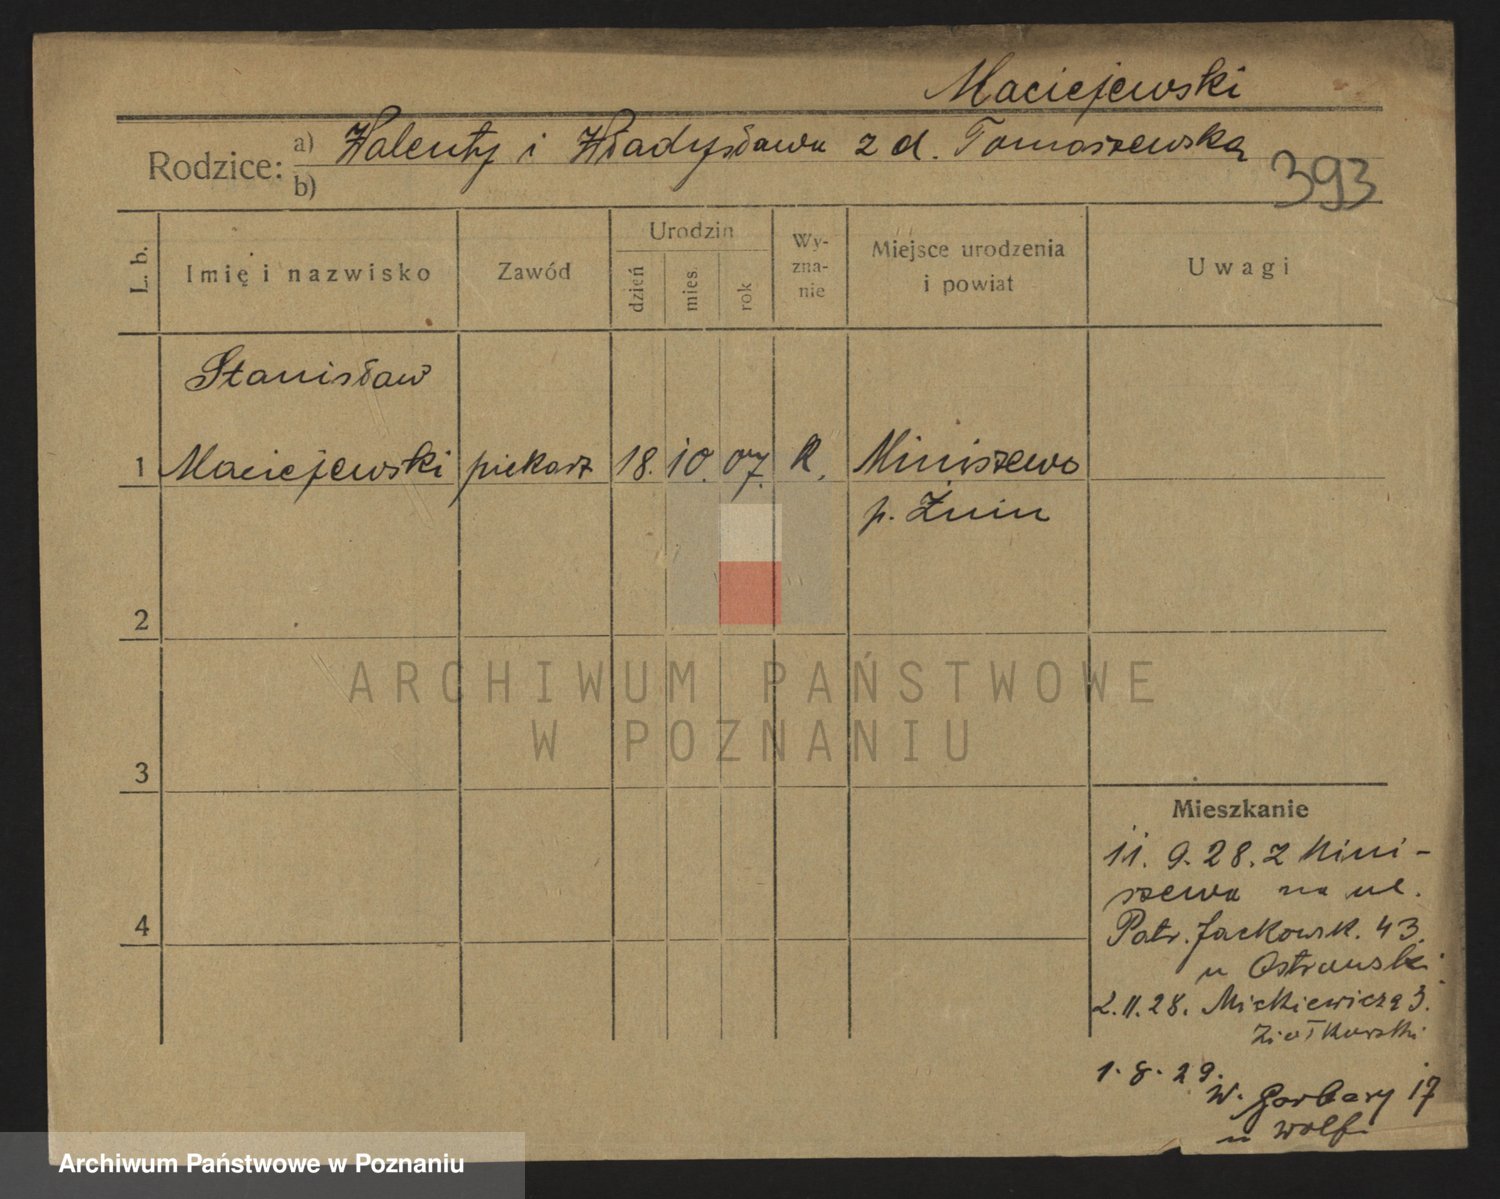 Maciejewski
Rodzice: a) Walenty i Władysława z d. Tomaszewska
b)
393
L. b.
Imię i nazwisko
Zawód
Urodzin
dzień
mies.
rok
Wy-
zna-
nie
Miejsce urodzenia
i powiat
Uwagi
Stanisław
1 Maciejewski piekarz 18. 10. 07. K. Miniszewo
p. Żnin
2
ARCHIWUM PAŃSTWOWE
W POZNANIU
3
Mieszkanie
11. 9. 28. z Mini-
szewa na ul.
4
Patr. Jackowsk. 43.
u Ostrowski
2. 11. 28. Mickiewicza 3.
Ziołkowski
1. 8. 29.
W. Garbary 17
u Wolf
Archiwum Państwowe w Poznaniu